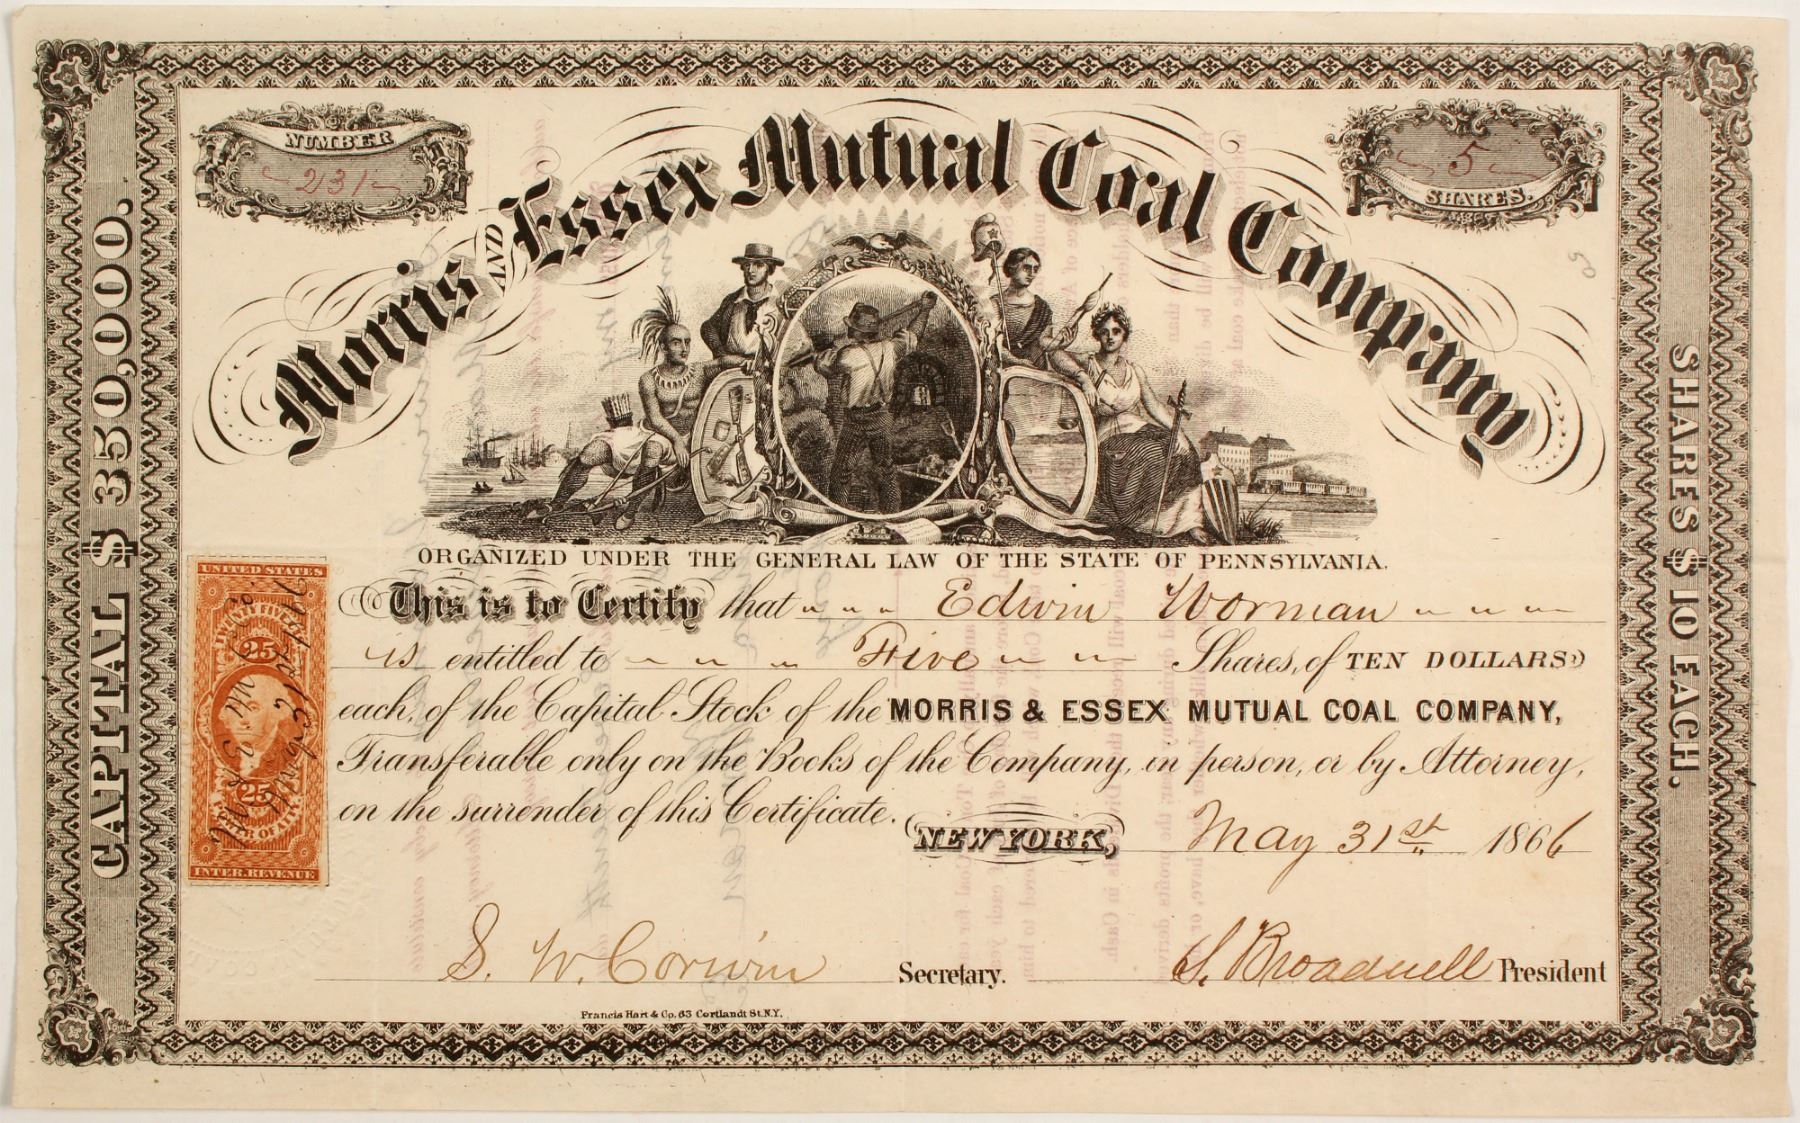 NUMBER
231
5
SHARES.
50
Morris AND Essex Mutual Coal Company
CAPITAL $350,000.
SHARES $10 EACH.
ORGANIZED UNDER THE GENERAL LAW OF THE STATE OF PENNSYLVANIA.
This is to Certify that Edwin Worman
is entitled to Five Shares, of TEN DOLLARS
each, of the Capital Stock of the MORRIS & ESSEX MUTUAL COAL COMPANY,
Transferable only on the Books of the Company, in person, or by Attorney,
on the surrender of this Certificate.
NEW YORK, May 31st 1866
S. W. Corwin Secretary. S. Broadwell President
Francis Hart & Co. 63 Cortlandt St. N.Y.
UNITED STATES
TWENTY FIVE
25
25
POWER OF ATTY
INTER. REVENUE